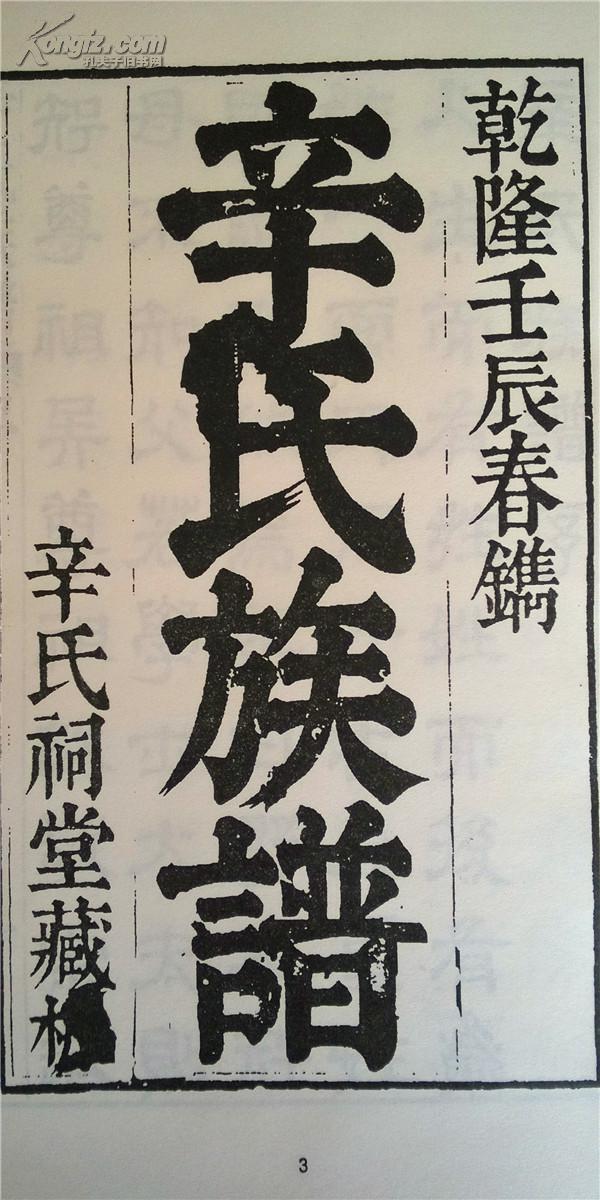 Kongfz.com
孔夫子旧书网
乾隆壬辰春鐫
辛氏族譜
辛氏祠堂藏
3